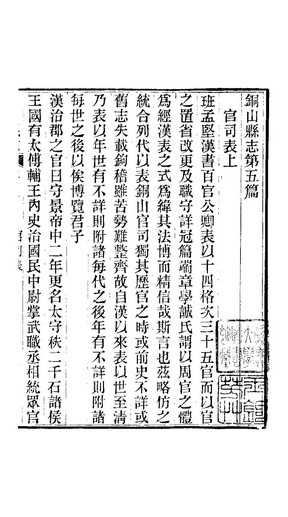 銅山縣志第五篇
官司表上
班孟堅漢書百官公卿表以十四格次三十五官而以官
之置省改更及職守詳冠篇端章學誠氏謂以周官之體
為經漢表之式為緯其法博而精信哉斯言也茲略仿之
統合列代以表銅山官司獨其歷官之時或前史不詳或
舊志失載鉤稽雖苦勢難整齊故自漢以來表以世至清
乃表以年世有不詳則附諸每代之後年有不詳則附諸
每世之後以俟博覽君子
漢治郡之官曰守景帝中二年更名太守秩二千石諸侯
王國有太傅輔王內史治國民中尉掌武職丞相統眾官